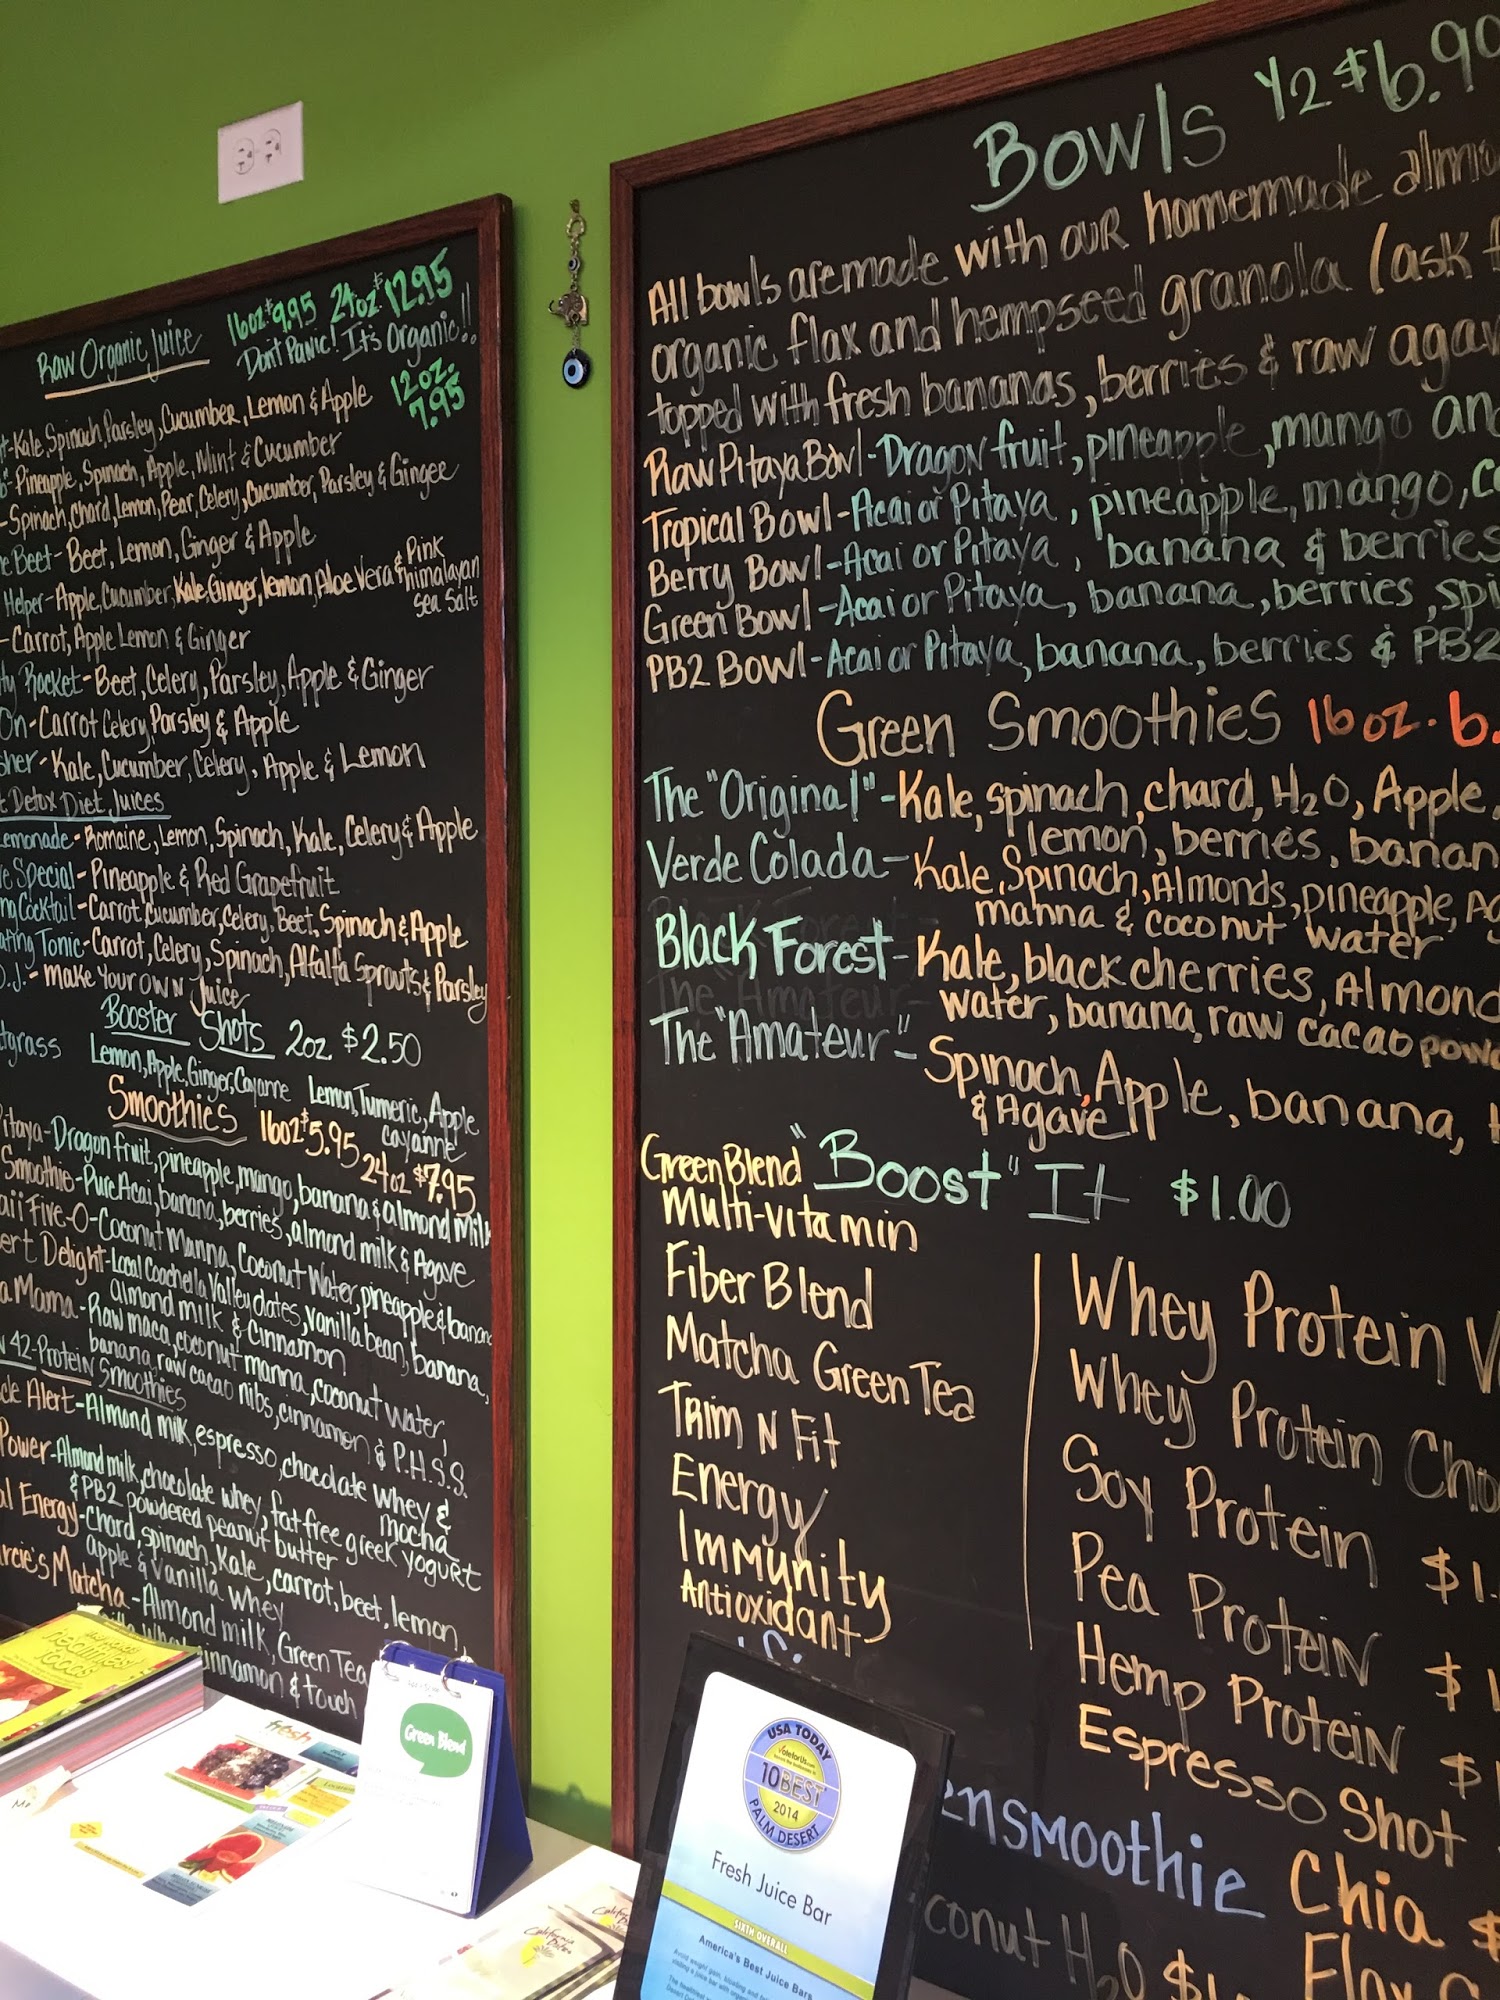 Raw Organic Juice
16oz $9.95 24oz $12.95
Don't Panic! It's Organic!!
12oz. 7.95
-Kale, Spinach, Parsley, Cucumber, Lemon & Apple
Pineapple, Spinach, Apple, Mint & Cucumber
-Spinach, Chard, Lemon, Pear, Celery, Cucumber, Parsley & Ginger
Beet- Beet, Lemon, Ginger & Apple
Helper-Apple, Cucumber, Kale, Ginger, lemon, Aloe Vera & Pink
himalayan
Sea Salt
-Carrot, Apple Lemon & Ginger
Rocket-Beet, Celery, Parsley, Apple & Ginger
On-Carrot Celery Parsley & Apple
-Kale, Cucumber, Celery, Apple & Lemon
Detox Diet Juices
Lemonade-Romaine, Lemon, Spinach, Kale, Celery & Apple
Special-Pineapple & Red Grapefruit
Cocktail-Carrot, Cucumber, Celery, Beet, Spinach & Apple
Tonic-Carrot, Celery, Spinach, Alfalfa Sprouts & Parsley
O.J.-make your own juice
Booster Shots 2oz $2.50
Lemon, Apple, Ginger, Cayanne Lemon, Tumeric, Apple
cayanne
Smoothies 16oz $5.95
24oz $7.95
Pitaya-Dragon fruit, pineapple, mango, banana & almond milk
Smoothie-Pure Acai, banana, berries, almond milk & Agave
Five-O-Coconut Manna, Coconut Water, pineapple & banana
Delight-Local Coachella Valley dates, vanilla bean, banana,
almond milk & Cinnamon
Mama-Raw maca, coconut manna, coconut water,
banana, raw cacao nibs, cinnamon & P.H.S.S.
42-Protein Smoothies
Alert-Almond milk, espresso, chocolate whey &
mocha
Power-Almond milk, chocolate whey, fat free greek yogurt
& PB2 powdered peanut butter
Energy-Chard, spinach, Kale, carrot, beet, lemon,
apple & Vanilla whey
Matcha-Almond milk, Green Tea
cinnamon & touch
Bowls 12 $6.99
All bowls are made with our homemade
organic flax and hempseed granola (ask
topped with fresh bananas, berries & raw
Raw Pitaya Bowl-Dragon fruit, pineapple, mango
Tropical Bowl-Acai or Pitaya, pineapple, mango,
Berry Bowl-Acai or Pitaya, banana & berries
Green Bowl-Acai or Pitaya, banana, berries,
PB2 Bowl-Acai or Pitaya, banana, berries & PB2
Green Smoothies 16oz.
The "Original"-Kale, spinach, chard, H2O, Apple,
lemon, berries,
Verde Colada-Kale, Spinach, Almonds, pineapple,
manna & coconut water
Black Forest-Kale, black cherries, Almond
water, banana, raw cacao
The "Amateur"-Spinach, Apple, banana,
& Agave
Green Blend "Boost" It $1.00
Multi-vitamin
Fiber Blend
Matcha Green Tea
Trim N Fit
Energy
Immunity
Antioxidant
Whey Protein
Whey Protein
Soy Protein
Pea Protein
Hemp Protein
Espresso Shot
Chia
Green Blend
USA TODAY
10BEST
2014
PALM DESERT
Fresh Juice Bar
SIXTH OVERALL
America's Best Juice Bars